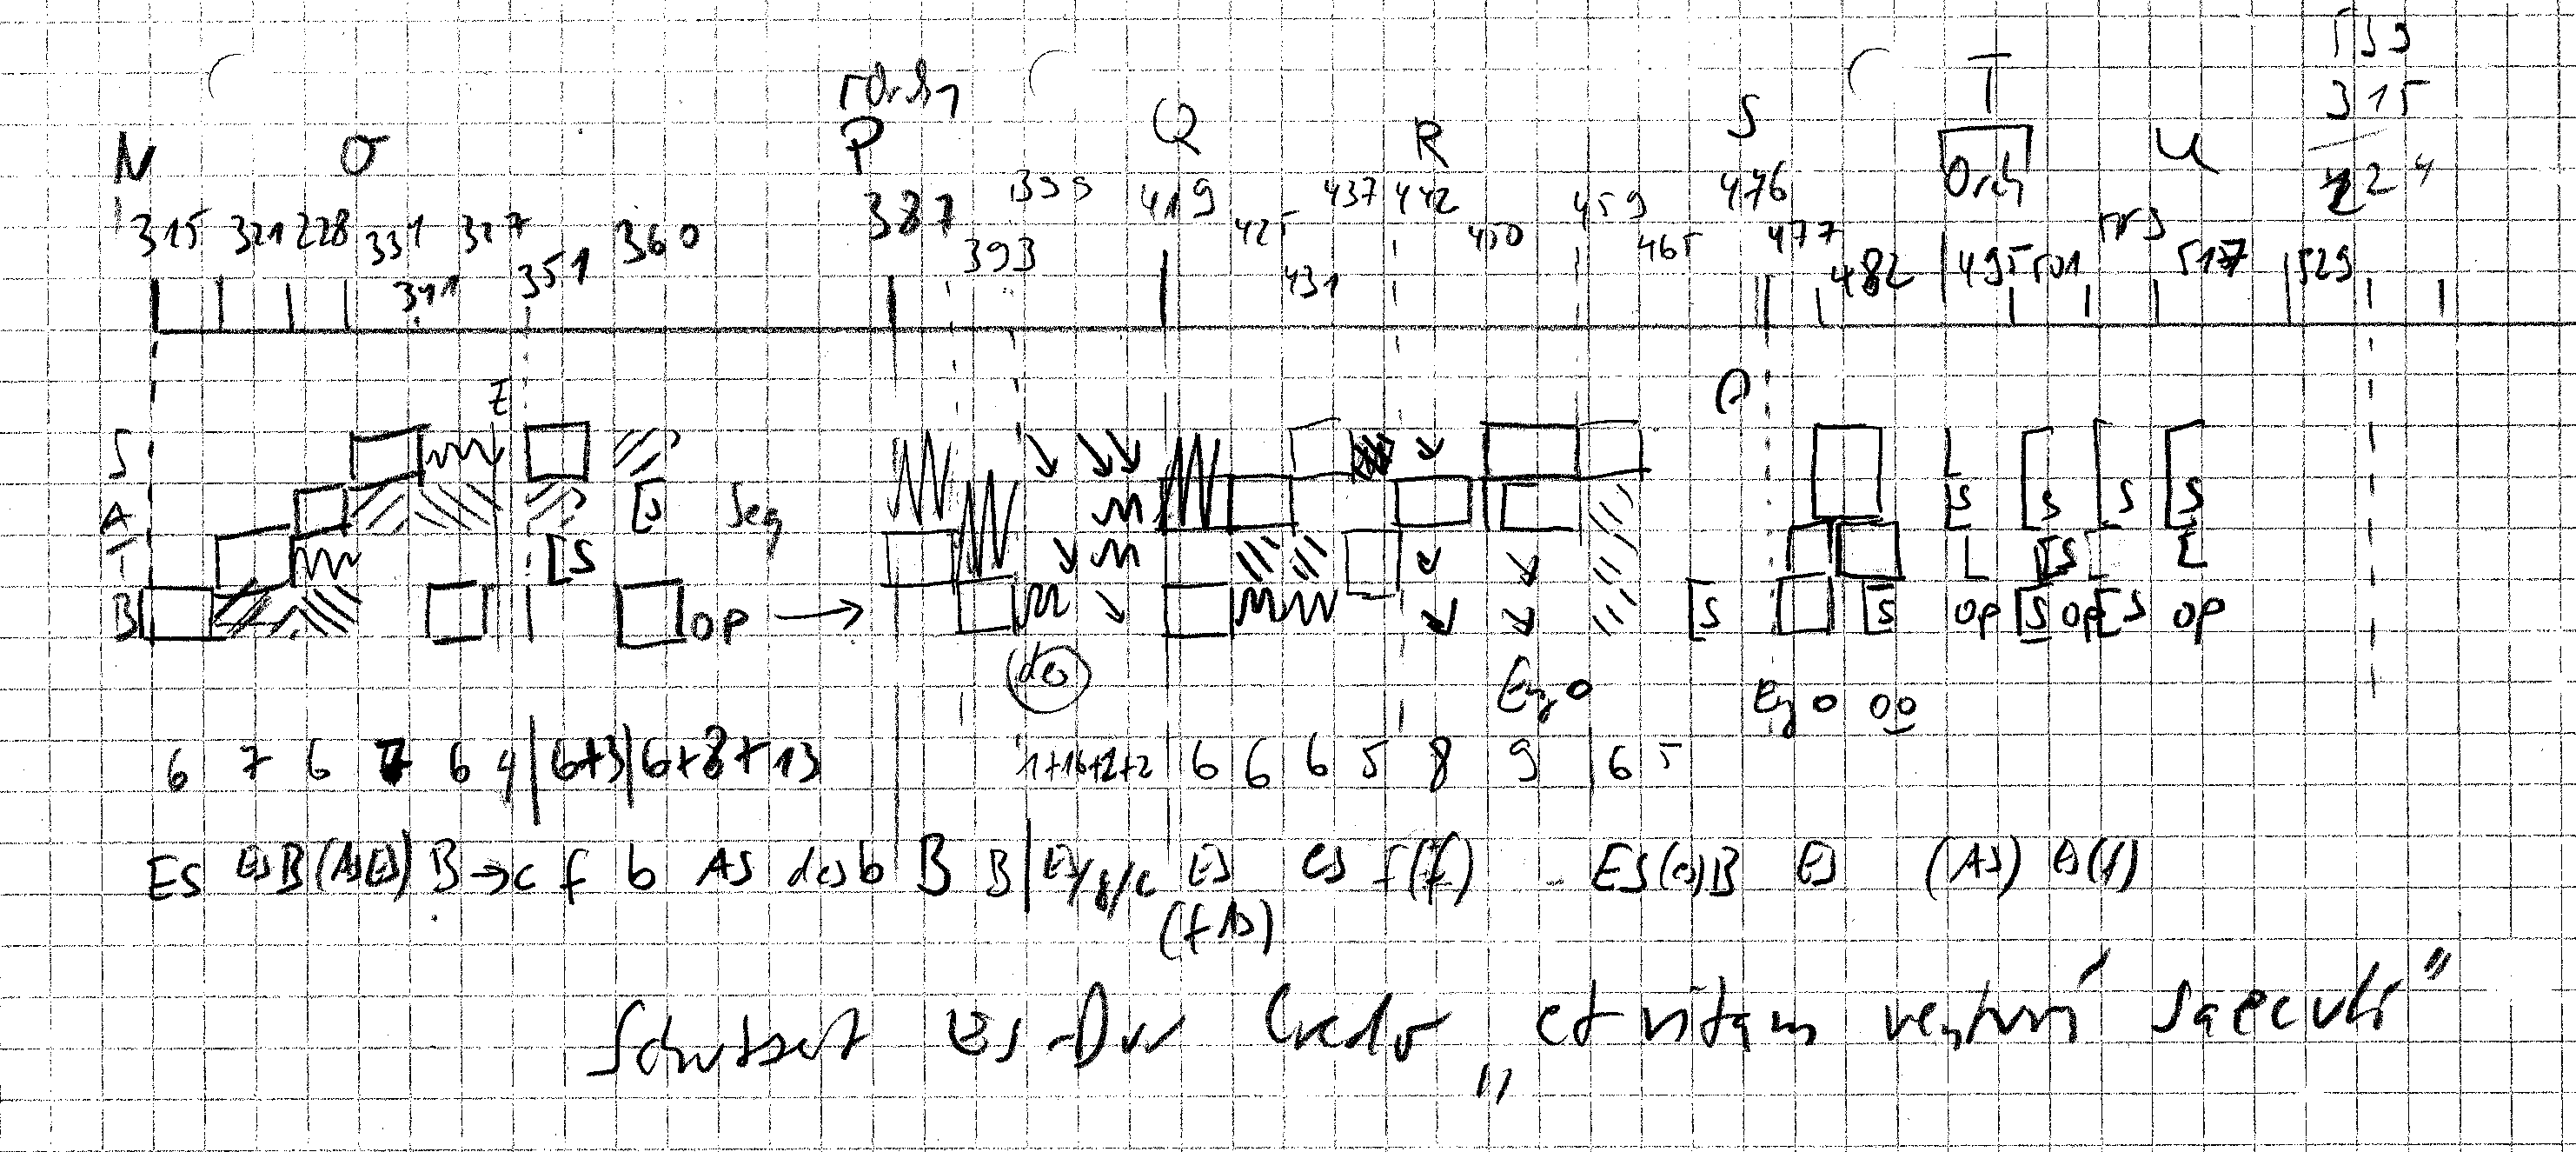 539
315
224
Orch
N O P Q R S T U
Orch
315 321 328 331 337 341 351 360 387 393 399 419 425 431 437 442 450 459 465 476 477 482 495 501 517 529
E
S
A [S Seq
T [S
B op → [S [S op [S op [S op
Eng o Eng o oo
6 7 6 7 6 4 | 6+3 | 6+8+13 1+16+2+2 6 6 6 5 8 9 6 5
ES Es B (As Es) B → c f b AS des b B B | Es/g/c Es es f(f) ES(es)B Es (AS) Es(f)
(f As)
Schubert Es-Dur Credo „et vitam venturi saeculi"